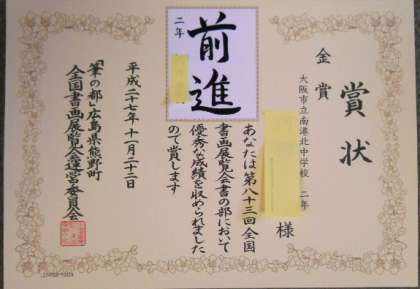 賞状
金賞
大阪市立南港北中学校 二年
様
あなたは第八十三回全国
書画展覧会書の部において
優秀な成績を収められました
ので賞します
前進
二年
平成二十七年十一月二十三日
「筆の都」広島県熊野町
全国書画展覧会運営委員会